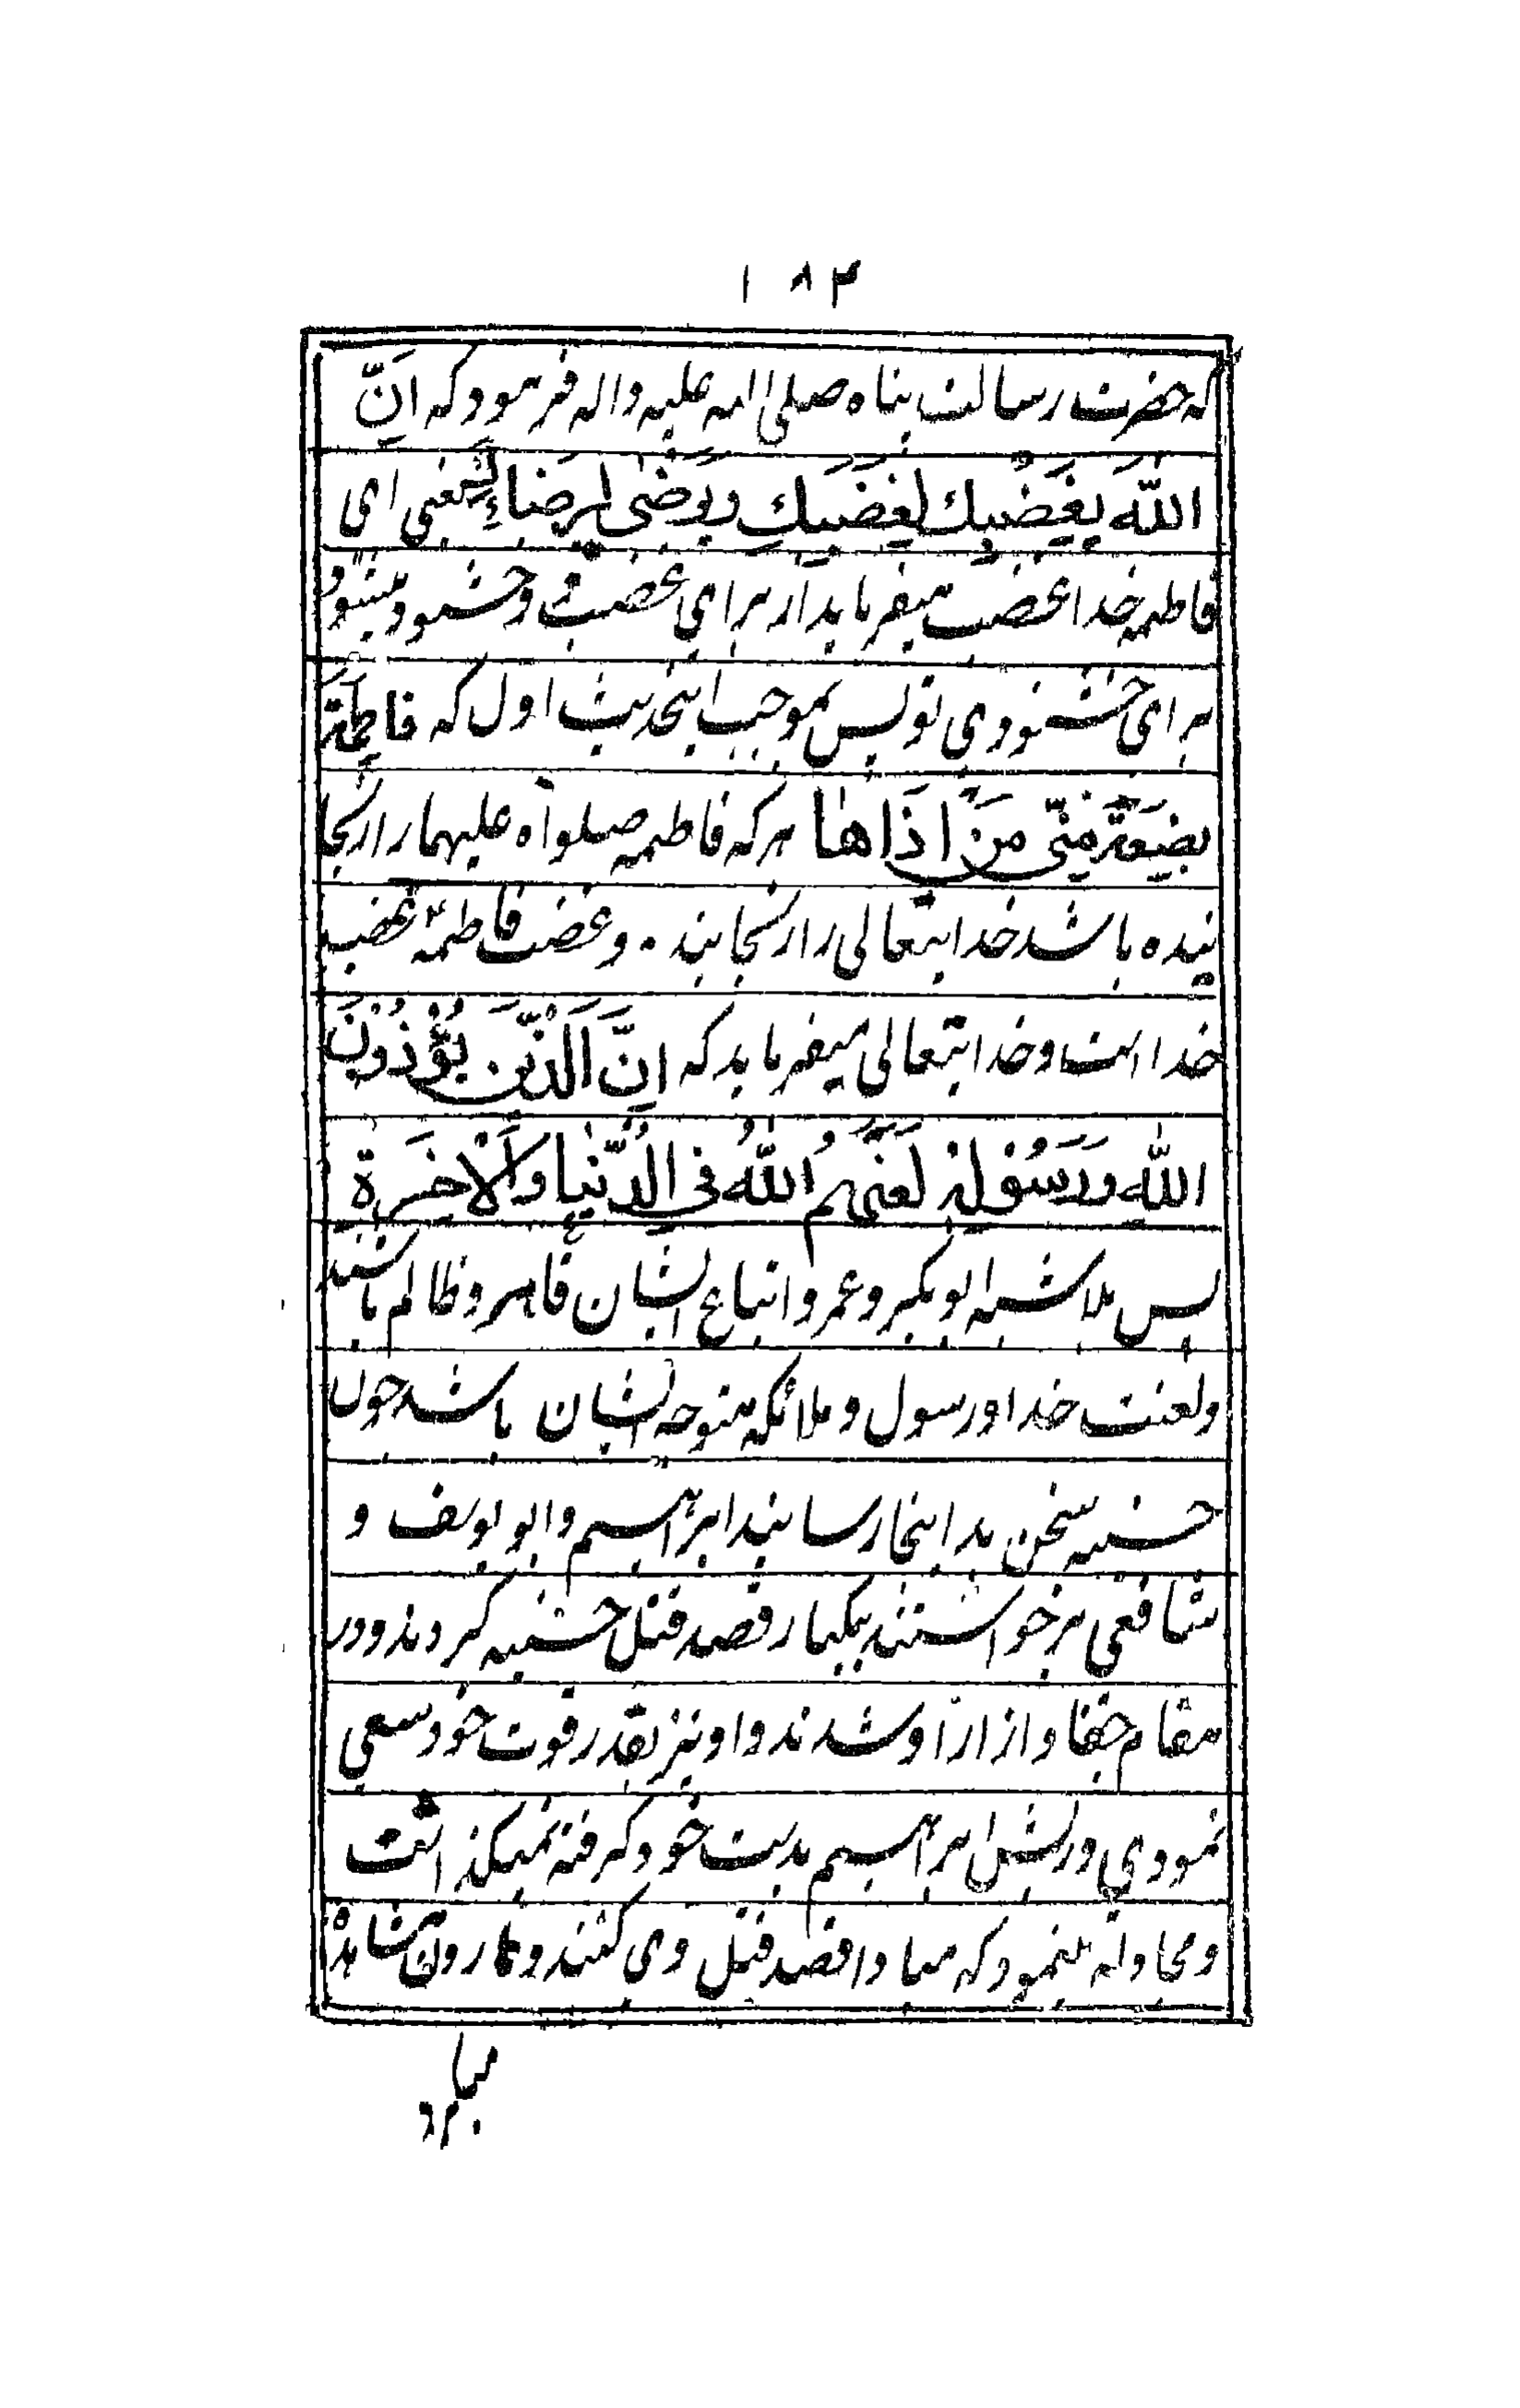 ۱۸۳
که حضرت رسالت پناه صلی الله علیه واله فرمود که انَّ
اللّٰهَ یغضبك لِغَضَبِكِ وَیَرْضٰی لِرِضَاءِكِ یعنی ای
فاطمه خدا غضب میفرماید از برای غضب تو وخشنود میشود
برای خشنودی تو پس بموجب اینحدیث اول که فاطِمَةُ
بِضْعَةٌ مِنّی مَنْ اٰذَاهٰا هر که فاطمه صلواة علیهما را رنجا
نیده باشد خدایتعالی را رنجانیده . و غضب فاطمه غضب
خدا است وخدایتعالی میفرماید که انَّ الَّذینَ یُؤْذُونَ
اللّٰهَ وَرَسُوْلَهُ لَعَنَهُمُ اللّٰهُ فی الدُّنْیٰا وَالْاٰخِرَةِ
پس بلاشبه ابوبکر و عمر و اتباع ایشان قاهر و ظالم باشند
ولعنت خدا ورسول و ملائکه متوجه ایشان باشد چون
حسنیه سخن بداینجا رسانید ابراهیم وابو یوسف و
شافعی برخواستند بیکبار قصد قتل حسنیه کردند ودر
مقام جفا وازار او شدند واو نیز بقدر قوت خود سعی
نمودی وریش ابراهیم بدست خود گرفته نمیگذاشت
ومجادله مینمود که مبادا قصد قتل وی کنند وهارون مشاهده